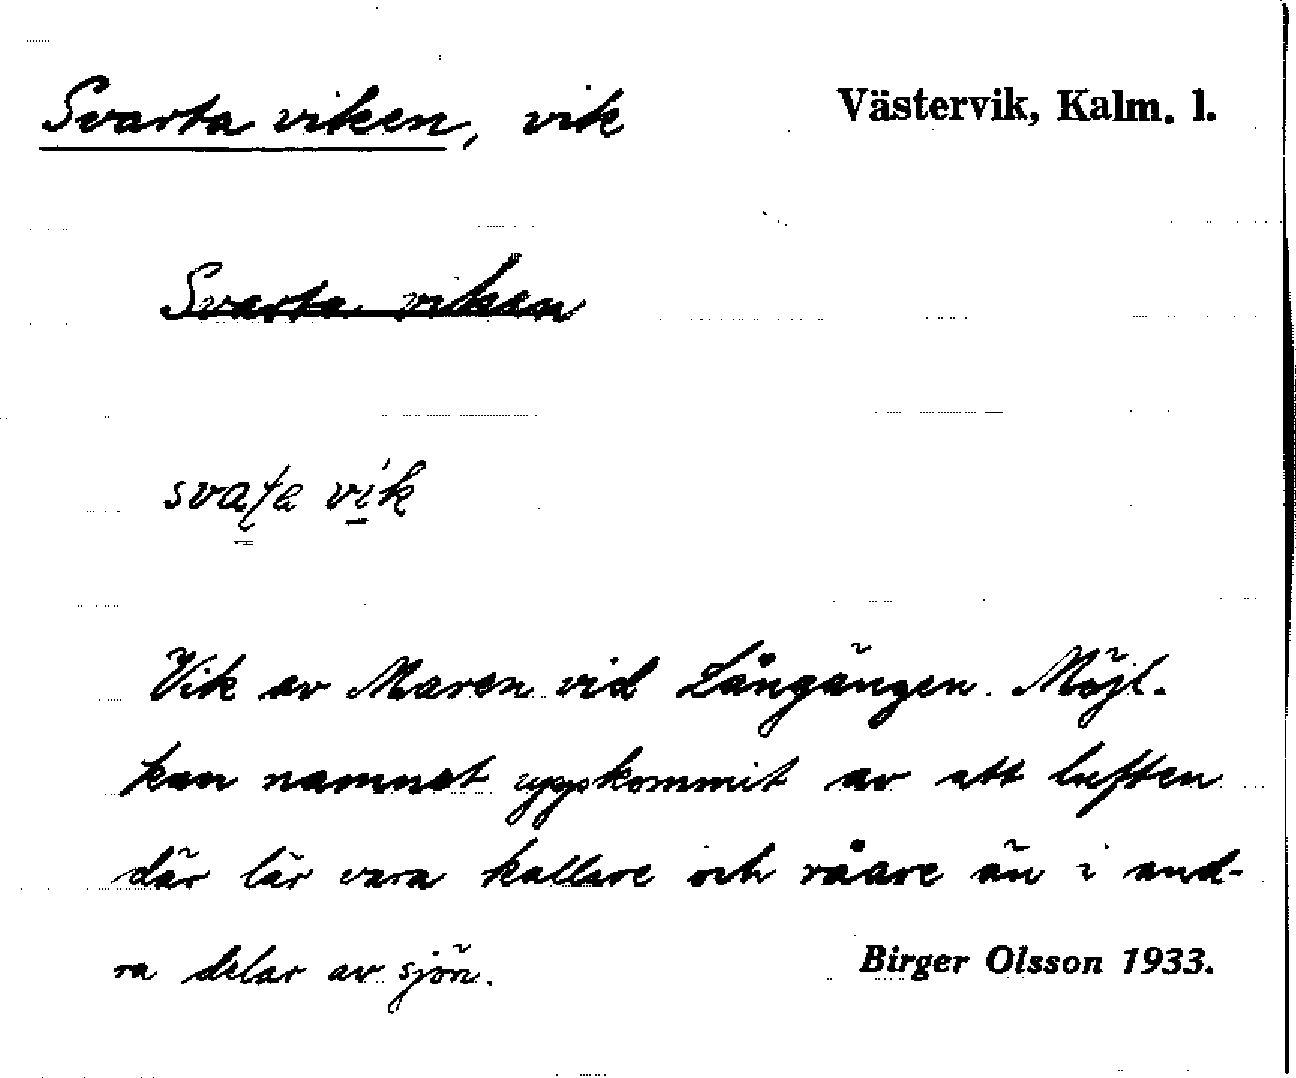 Svarta viken, vik
Västervik, Kalm. l.
Svarta viken
Vik av Maren vid Långängen. Möjl.
kan namnet uppkommit av att luften
där lär vara kallare och råare än i and-
ra delar av sjön.
Birger Olsson 1933.